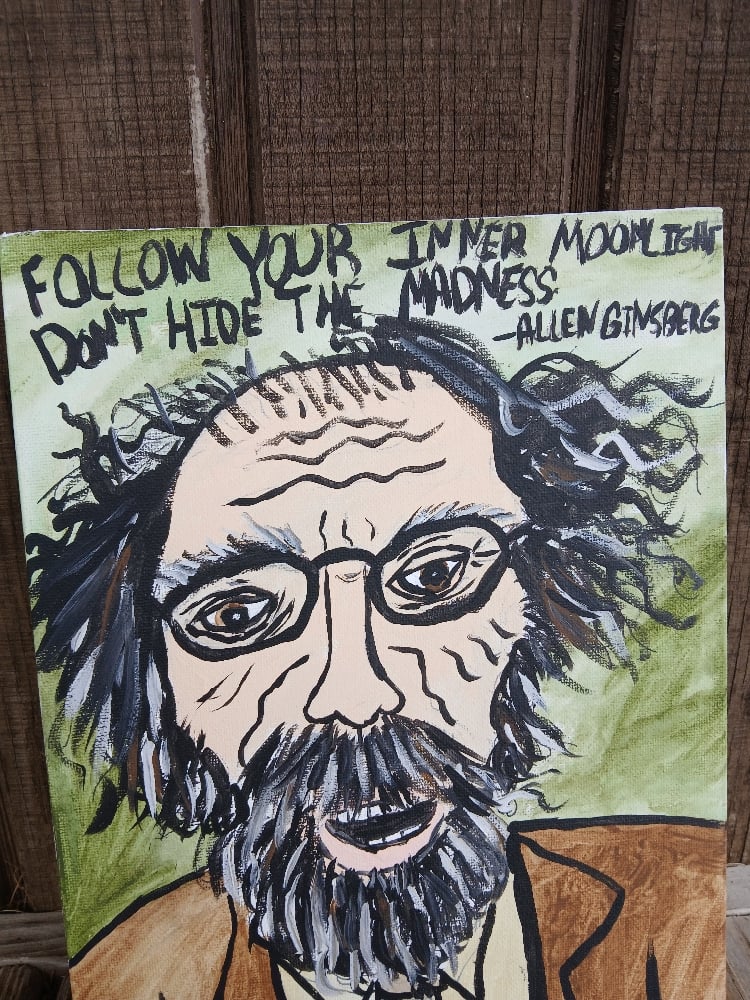 FOLLOW YOUR INNER MOONLIGHT
DON'T HIDE THE MADNESS
-ALLEN GINSBERG